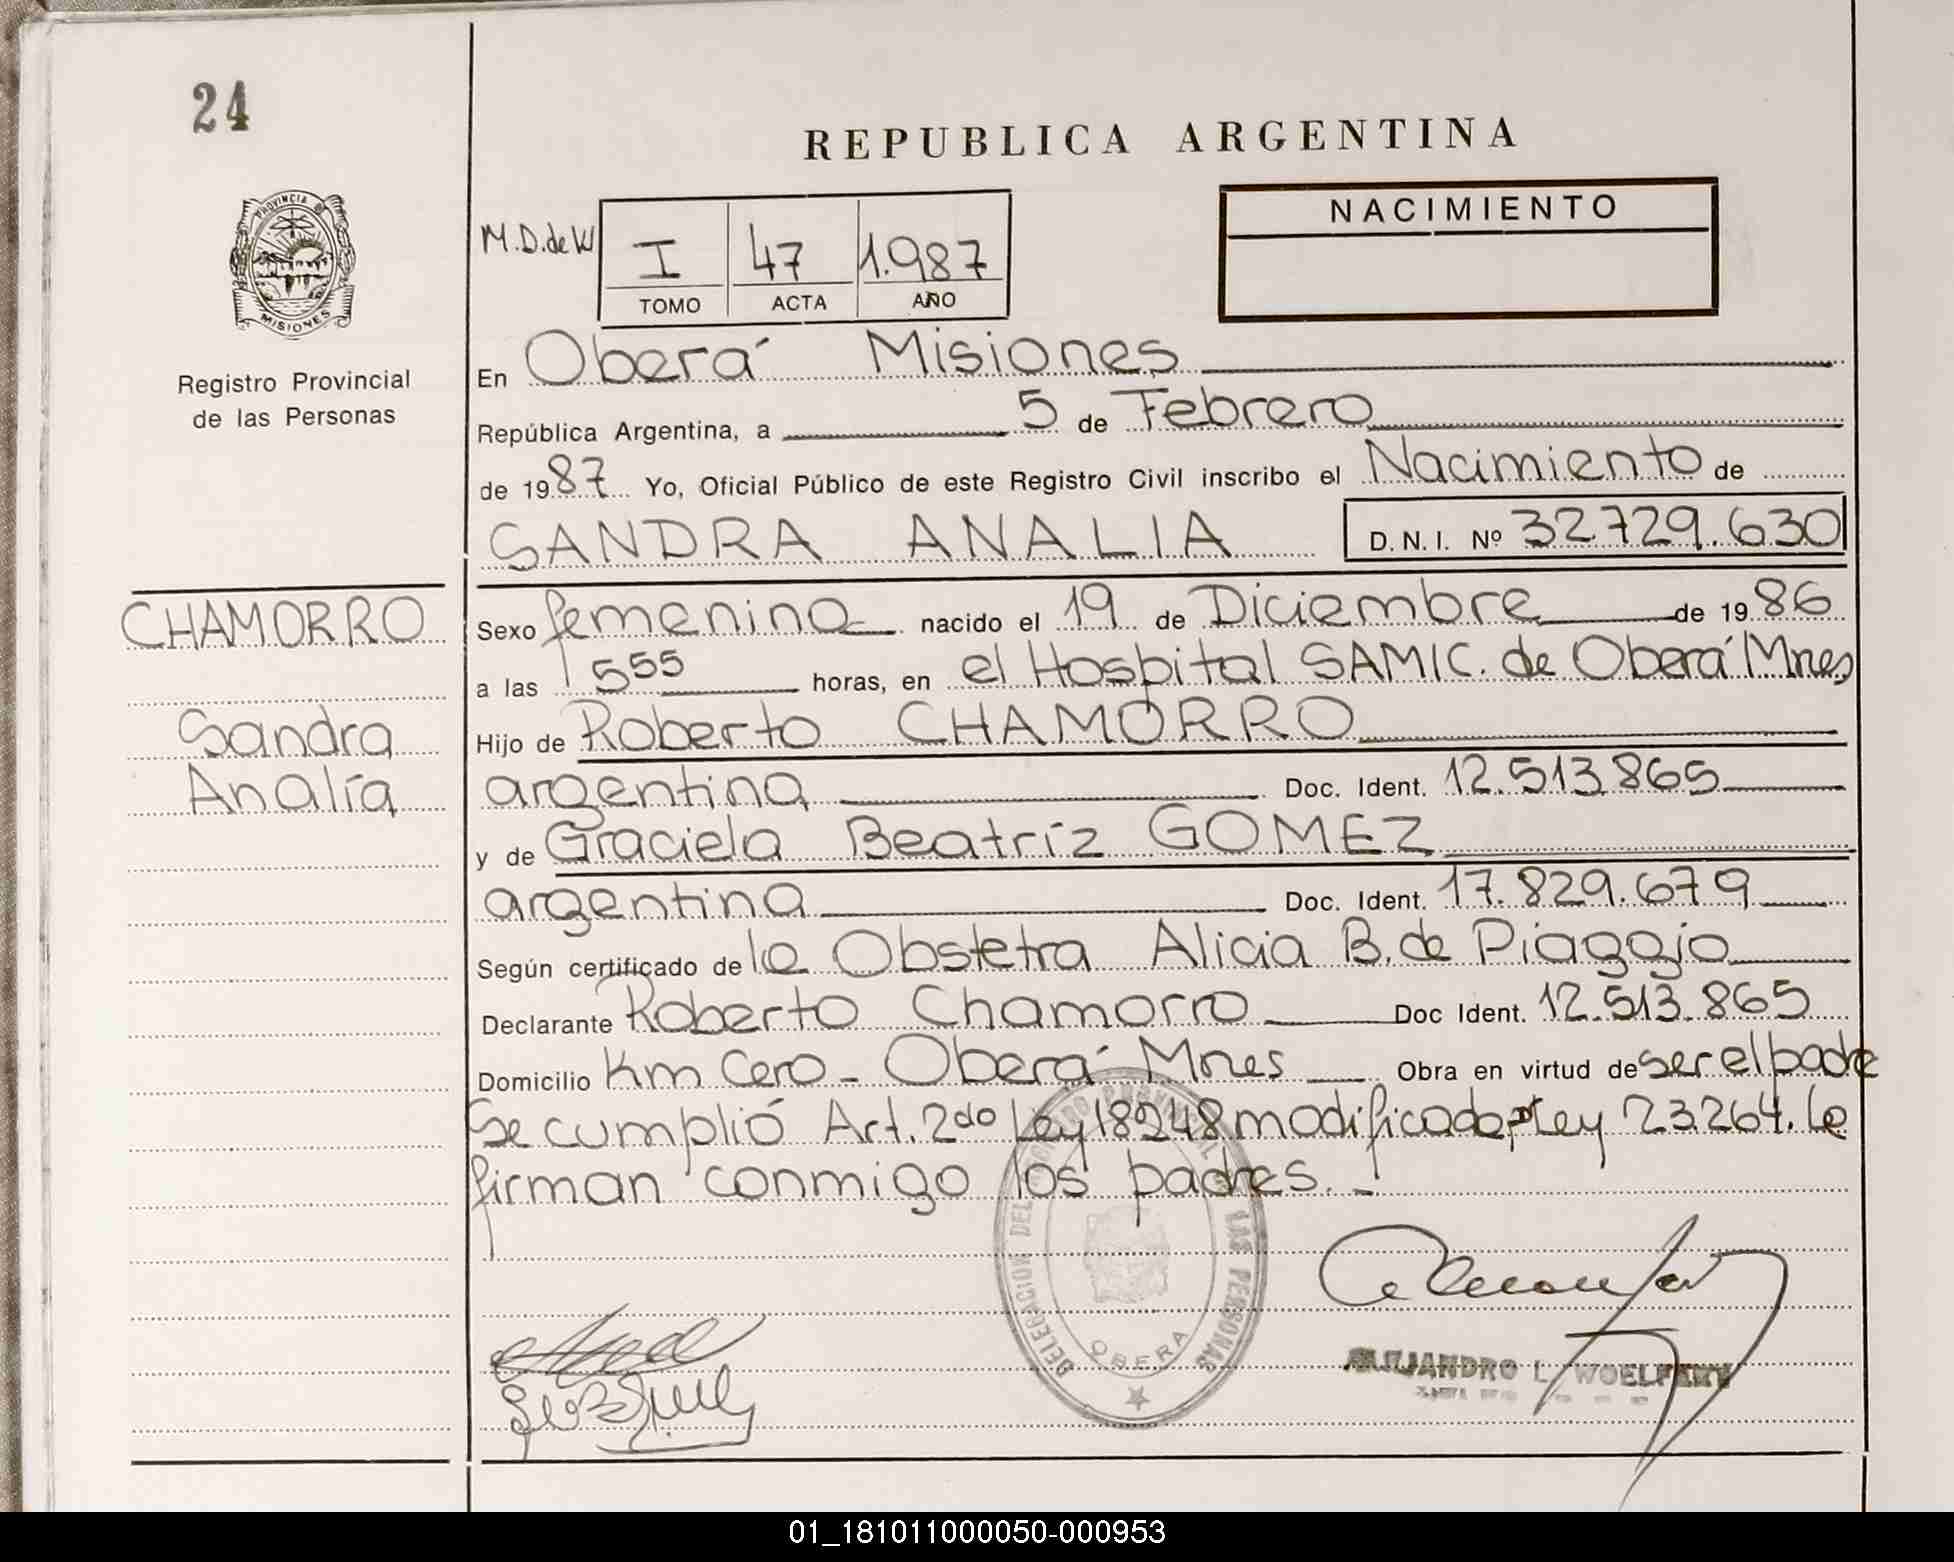 24
REPUBLICA ARGENTINA
PROVINCIA DE
MISIONES
Registro Provincial
de las Personas
M.D.de W
I 47 1.987
TOMO ACTA AÑO
NACIMIENTO
En Oberá Misiones
República Argentina, a 5 de Febrero
de 1987 Yo, Oficial Público de este Registro Civil inscribo el Nacimiento de
SANDRA ANALIA D.N.I. Nº 32.729.630
CHAMORRO
Sandra
Analía
Sexo femenino nacido el 19 de Diciembre de 1986
a las 555 horas, en el Hospital SAMIC. de Oberá Mnes
Hijo de Roberto CHAMORRO
argentina Doc. Ident. 12.513.865
y de Graciela Beatríz GOMEZ
argentina Doc. Ident. 17.829.679
Según certificado de la Obstetra Alicia B. de
Declarante Roberto Chamorro Doc Ident. 12.513.865
Domicilio Km Cero - Oberá Mnes Obra en virtud de ser el padre
Se cumplió Art. 2do Ley 18248 modificada Ley 23.264. Le
firman conmigo los padres. -
DELEGACION DEL REGISTRO PROVINCIAL DE LAS PERSONAS
OBERA
ALEJANDRO L. WOELFERT
01_181011000050-000953